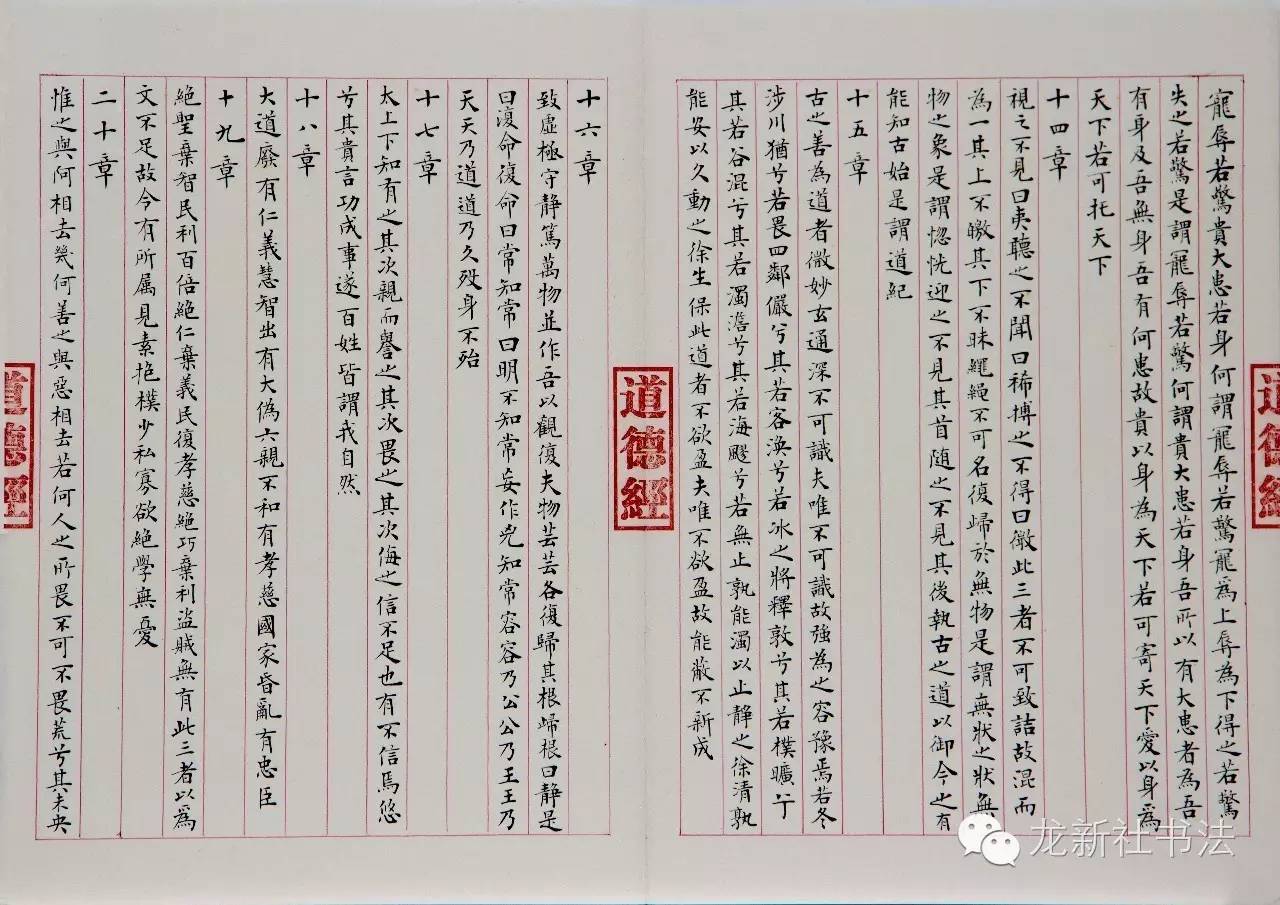 寵辱若驚貴大患若身何謂寵辱若驚寵為上辱為下得之若驚
失之若驚是謂寵辱若驚何謂貴大患若身吾所以有大患者為吾
有身及吾無身吾有何患故貴以身為天下若可寄天下愛以身為
天下若可托天下
十四章
視之不見曰夷聽之不聞曰稀搏之不得曰微此三者不可致詰故混而
為一其上不皦其下不昧繩繩不可名復歸於無物是謂無狀之狀無
物之象是謂惚恍迎之不見其首随之不見其後執古之道以御今之有
能知古始是謂道紀
十五章
古之善為道者微妙玄通深不可識夫唯不可識故強為之容豫焉若冬
涉川猶兮若畏四鄰儼兮其若容渙兮若冰之將釋敦兮其若樸曠兮
其若谷混兮其若濁澹兮其若海飂兮若無止孰能濁以止靜之徐清孰
能安以久動之徐生保此道者不欲盈夫唯不欲盈故能蔽不新成
道德經
十六章
致虛極守静篤萬物並作吾以觀復夫物芸芸各復歸其根歸根曰静是
曰復命復命曰常知常曰明不知常妄作兇知常容容乃公公乃王王乃
天天乃道道乃久歿身不殆
十七章
太上下知有之其次親而譽之其次畏之其次侮之信不足也有不信焉悠
兮其貴言功成事遂百姓皆謂我自然
十八章
大道廢有仁義慧智出有大偽六親不和有孝慈國家昏亂有忠臣
十九章
絕聖棄智民利百倍絕仁棄義民復孝慈絕巧棄利盜賊無有此三者以為
文不足故今有所属見素抱樸少私寡欲絕學無憂
二十章
惟之與阿相去幾何善之與惡相去若何人之所畏不可不畏荒兮其未央
道德經
道德經
龙新社书法